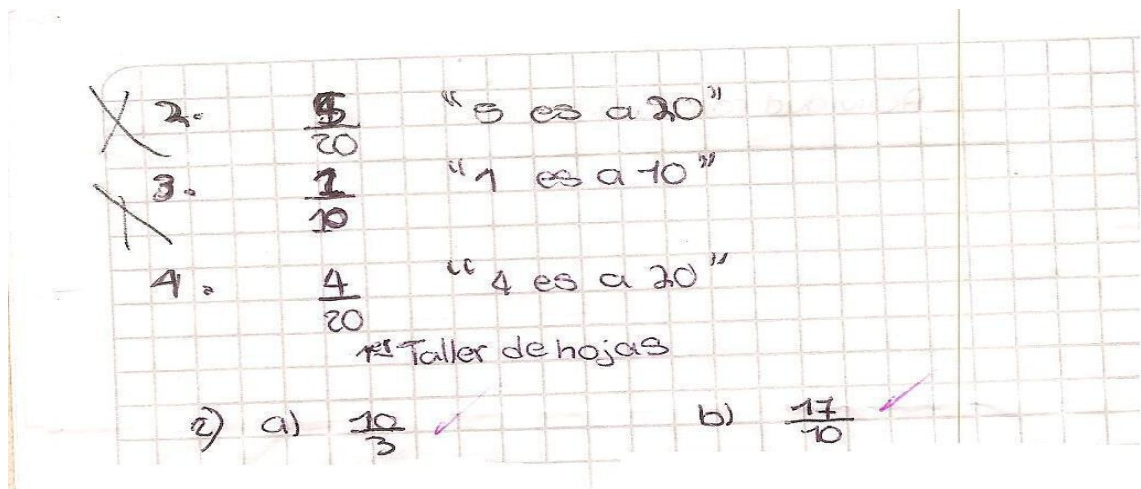 2. 5/20 "5 es a 20"
3. 1/10 "1 es a 10"
4. 4/20 "4 es a 20"
1er Taller de hojas
2) a) 10/3 b) 17/10